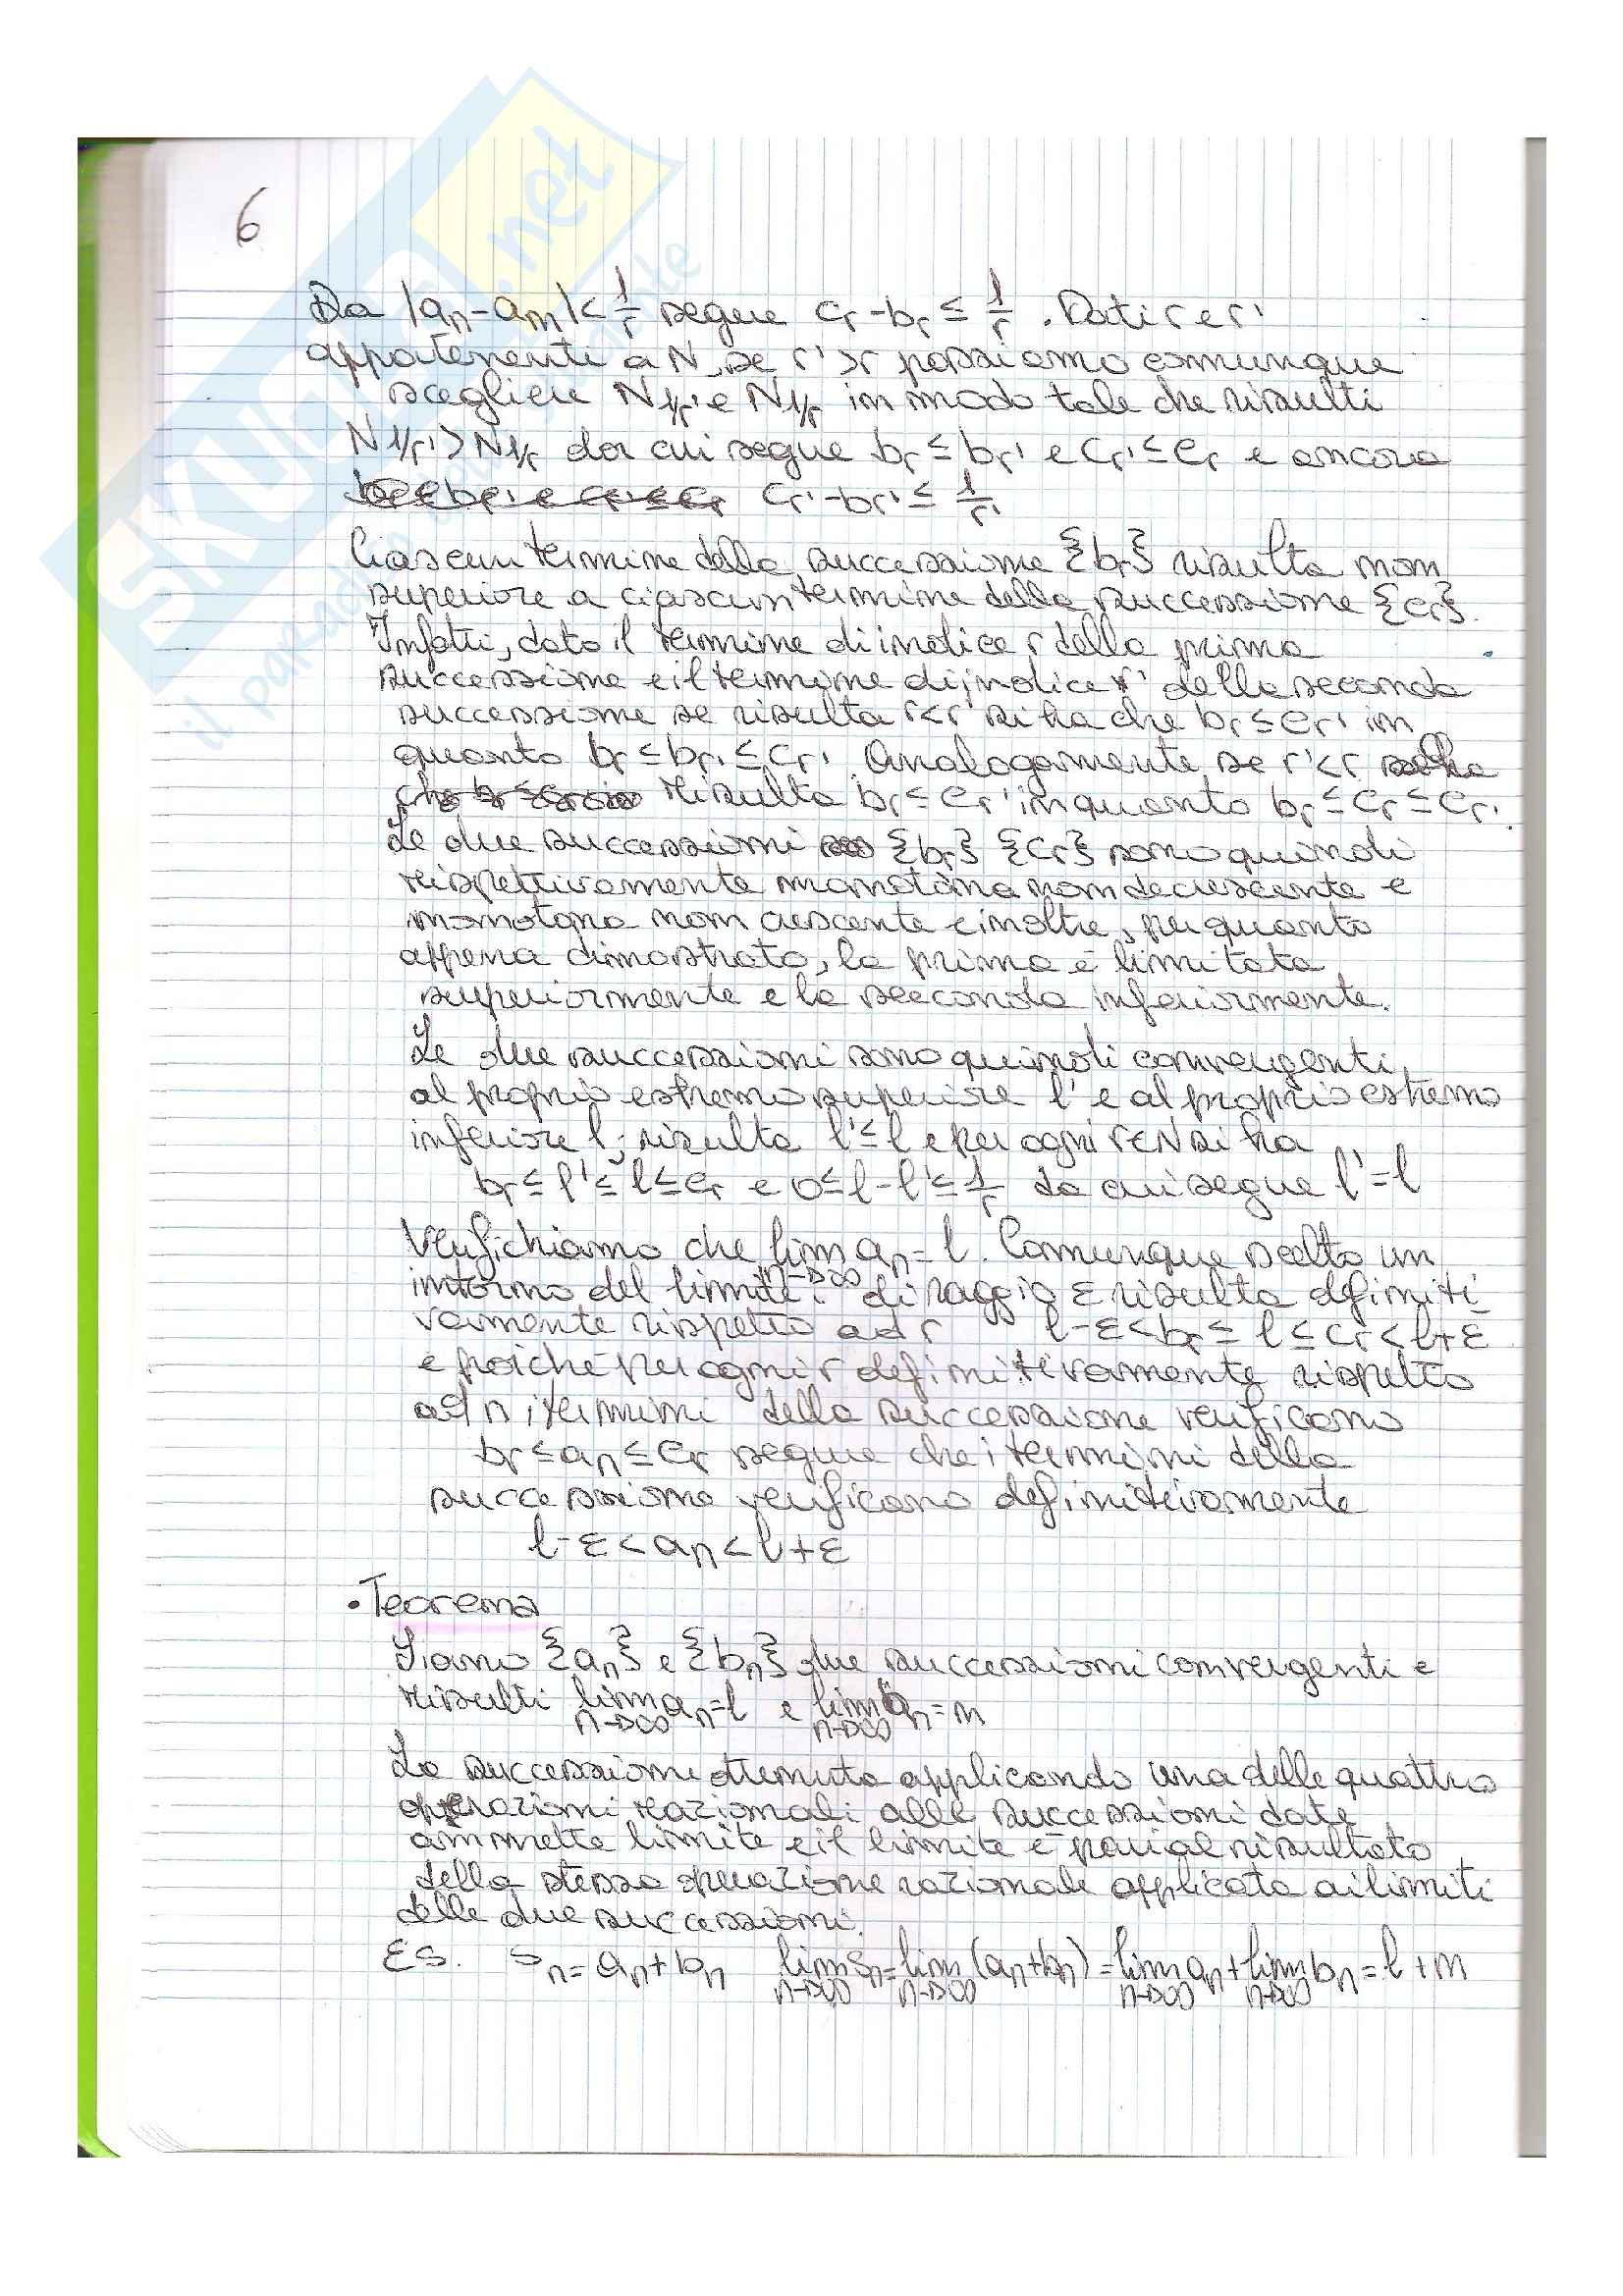 6
Da |an-am|<1/r segue cr-br ≤ 1/r . Dati r e r'
appartenenti a N, se r'>r possiamo comunque
scegliere N1/r' e N1/r in modo tale che risulti
N1/r'>N1/r da cui segue br≤br' e cr'≤cr e ancora
cr'-br'≤ 1/r'
Ciascun termine della successione {br} risulta non
superiore a ciascun termine della successione {cr}.
Infatti, dato il termine di indice r della prima
successione e il termine di indice r' della seconda
successione se risulta r<r' si ha che br≤cr' in
quanto br≤br'≤cr'. Analogamente se r'<r
risulta br≤cr' in quanto br≤cr≤cr'.
Le due successioni {br} {cr} sono quindi
rispettivamente monotona non decrescente e
monotona non crescente e inoltre, per quanto
appena dimostrato, la prima è limitata
superiormente e la seconda inferiormente.
Le due successioni sono quindi convergenti,
al proprio estremo superiore l' e al proprio estremo
inferiore l; risulta l'≤l e per ogni r∈N si ha
br≤l'≤l≤cr e 0≤l-l'≤1/r da cui segue l'=l
Verifichiamo che lim n→∞ an=l. Comunque scelto un
intorno del limite di raggio ε risulta definiti-
vamente rispetto ad r l-ε<br≤l≤cr<l+ε
e poiché per ogni r definitivamente rispetto
ad n i termini della successione verificano
br≤an≤cr segue che i termini della
successione verificano definitivamente
l-ε<an<l+ε
•Teorema
Siano {an} e {bn} due successioni convergenti e
risulti lim n→∞ an=l e lim n→∞ bn=m
La successione ottenuta applicando una delle quattro
operazioni razionali alle successioni date
ammette limite e il limite è pari al risultato
della stessa operazione razionale applicata ai limiti
delle due successioni.
ES. Sn=an+bn lim n→∞ Sn=lim n→∞ (an+bn)=lim n→∞ an+lim n→∞ bn=l+m